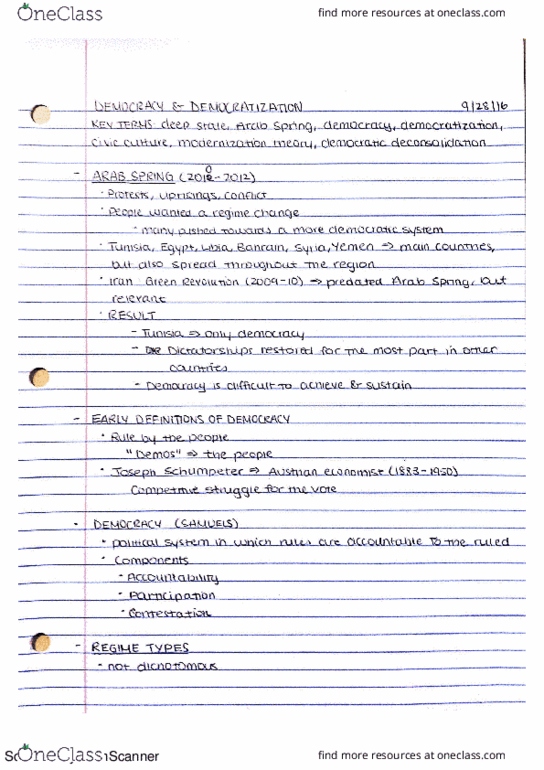 OneClass
find more resources at oneclass.com
DEMOCRACY & DEMOCRATIZATION 9/28/16
KEY TERMS: deep state, Arab Spring, democracy, democratization,
civic culture, modernization theory, democratic deconsolidation
- ARAB SPRING (2010-2012)
· Protests, uprisings, conflict
· People wanted a regime change
· many pushed towards a more democratic system
· Tunisia, Egypt, Libia, Bahrain, Syria, Yemen ⇒ main countries,
but also spread throughout the region
· Iran Green Revolution (2009-10) ⇒ predated Arab Spring, but
relevant
· RESULT
- Tunisia ⇒ only democracy
- Dictatorships restored for the most part in other
countries
- Democracy is difficult to achieve & sustain
- EARLY DEFINITIONS OF DEMOCRACY
· Rule by the people
"Demos" ⇒ the people
· Joseph Schumpeter ⇒ Austrian economist (1883-1950)
Competitive struggle for the vote
- DEMOCRACY (SAMUELS)
· political system in which rules are accountable to the ruled
· Components
· Accountability
· Participation
· Contestation
- REGIME TYPES
· not dichotomous
OneClass
Scanner
find more resources at oneclass.com